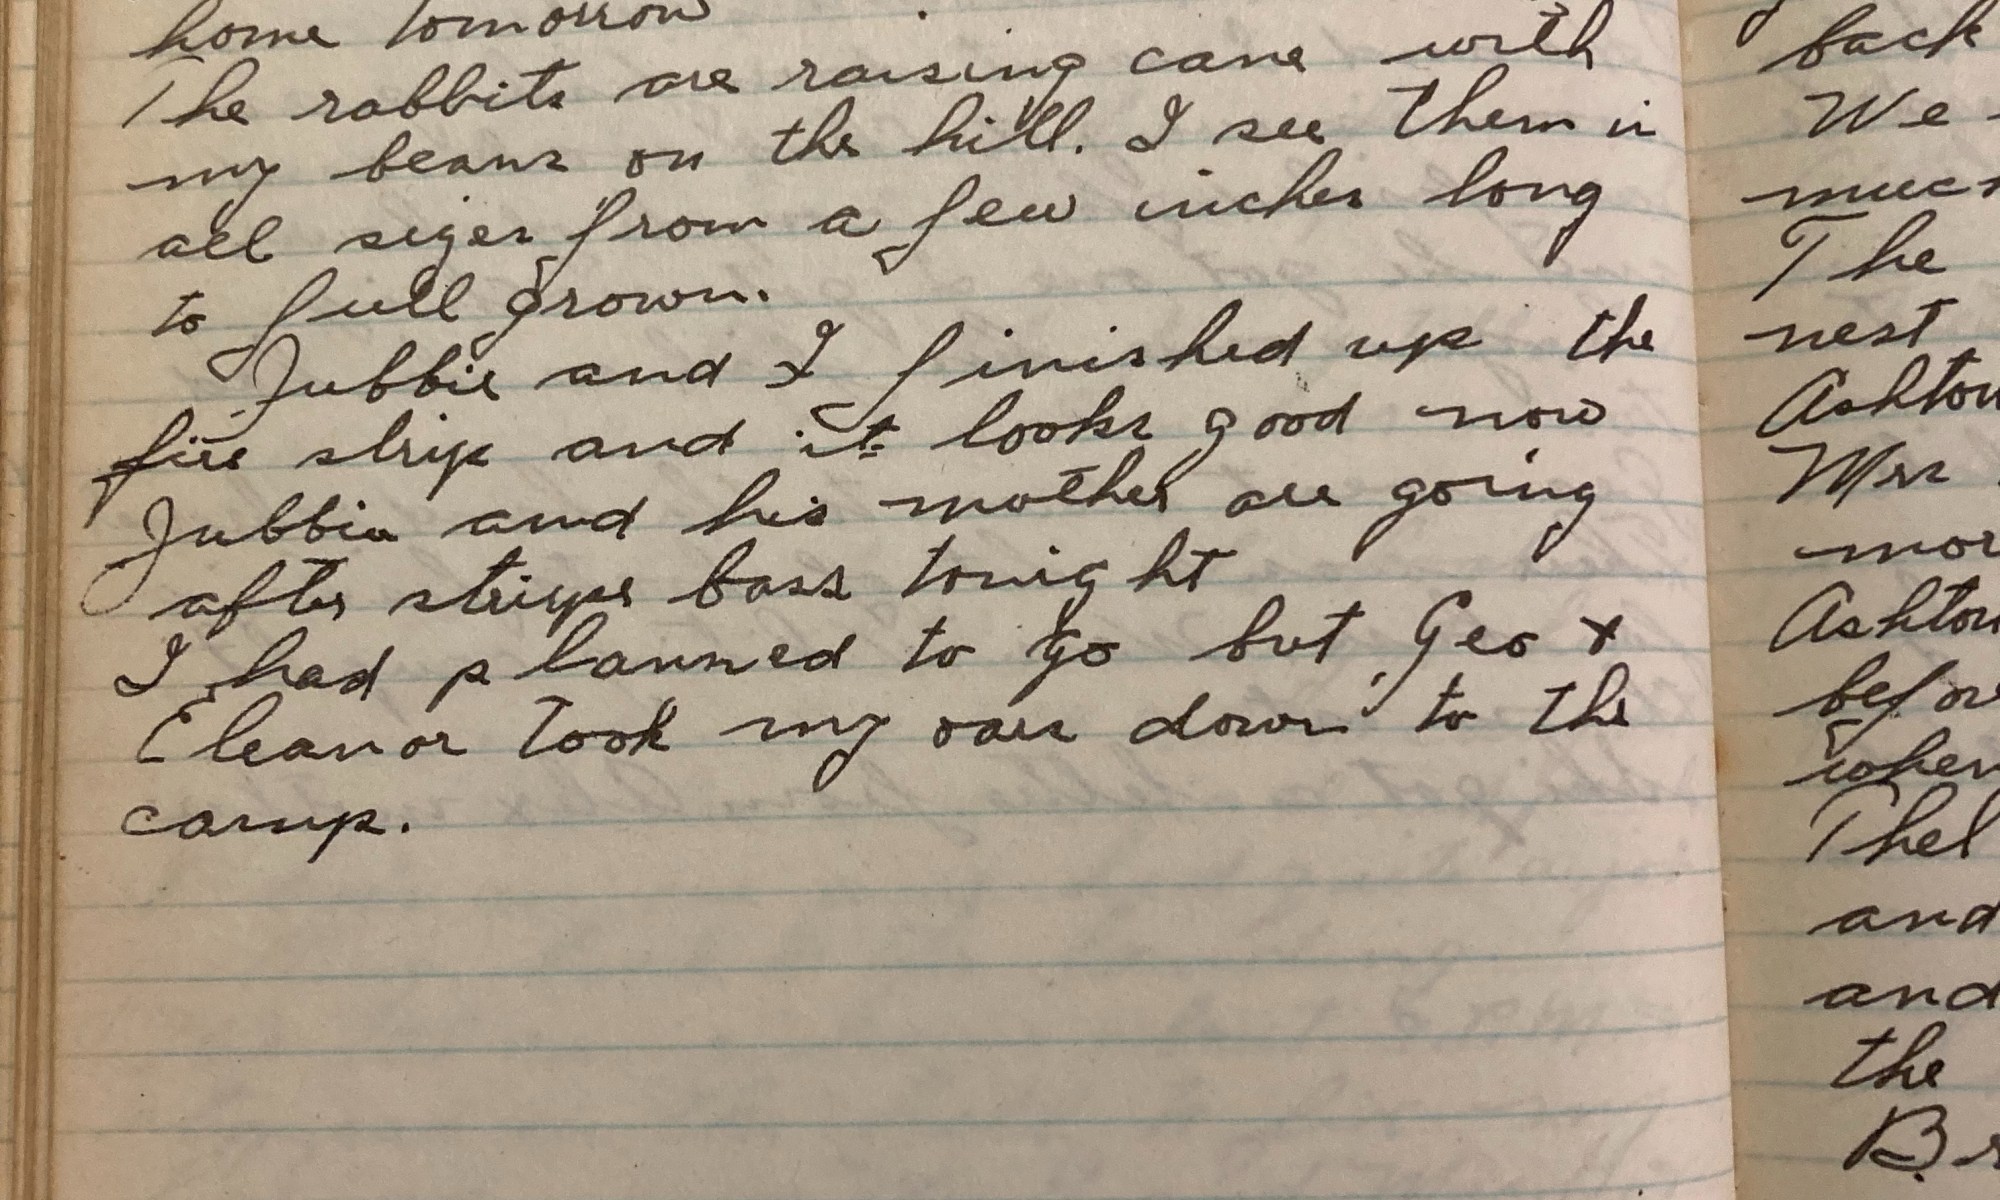 home tomorrow
The rabbits are raising cane with
my beans on the hill. I see them in
all sizes from a few inches long
to full grown.
Jubbie and I finished up the
fire strip and it looks good now
Jubbie and his mother are going
after stripe bass tonight
I had planned to go but Geo +
Eleanor took my oars down to the
camp.
back
We
The
nest
Ashton
Mrs
Ashton
before
when
and
and
the